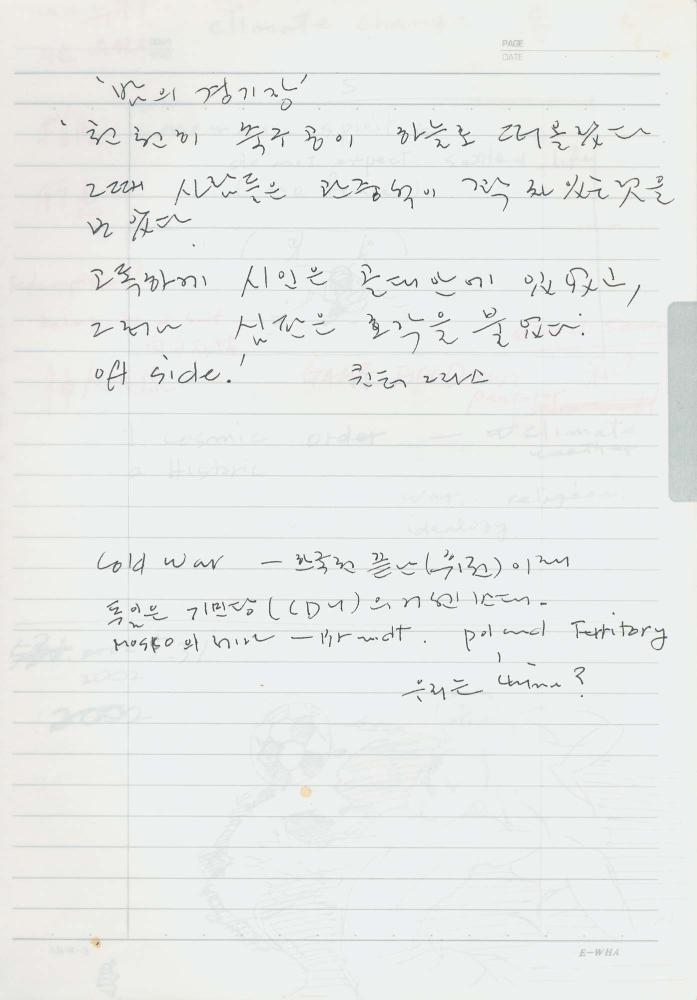 PAGE
DATE
'밤의 경기장'
'천천히 축구공이 하늘로 떠올랐다
그때 사람들은 관중석이 꽉 차 있는 것을
보았다.
고독하게 시인은 골대 안에 있었고,
그러나 심판은 호각을 불었다:
off side.' 퀸터 그라스
Cold War – 한국전 끝난 (휴전) 이래
독일은 기민당 (CDU) 의
MOSKO 의 – Brandt. poland Territory
우리는 China?
E-WHA